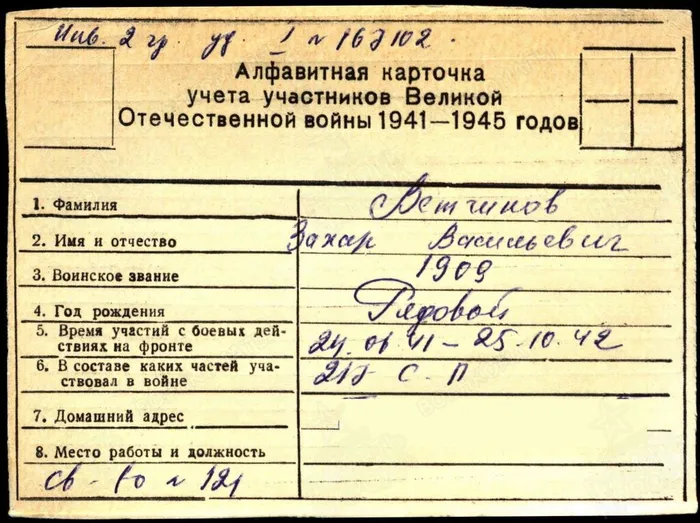 Инв. 2 гр. уд. I № 167102.
Алфавитная карточка
учета участников Великой
Отечественной войны 1941—1945 годов
1. Фамилия Ветчинов
2. Имя и отчество Захар Васильевич
3. Воинское звание 1909
4. Год рождения Рядовой
5. Время участий с боевых дей-
ствиях на фронте 24.06.41 – 25.10.42
6. В составе каких частей уча-
ствовал в войне 217 С-П
7. Домашний адрес
8. Место работы и должность
св-во № 121